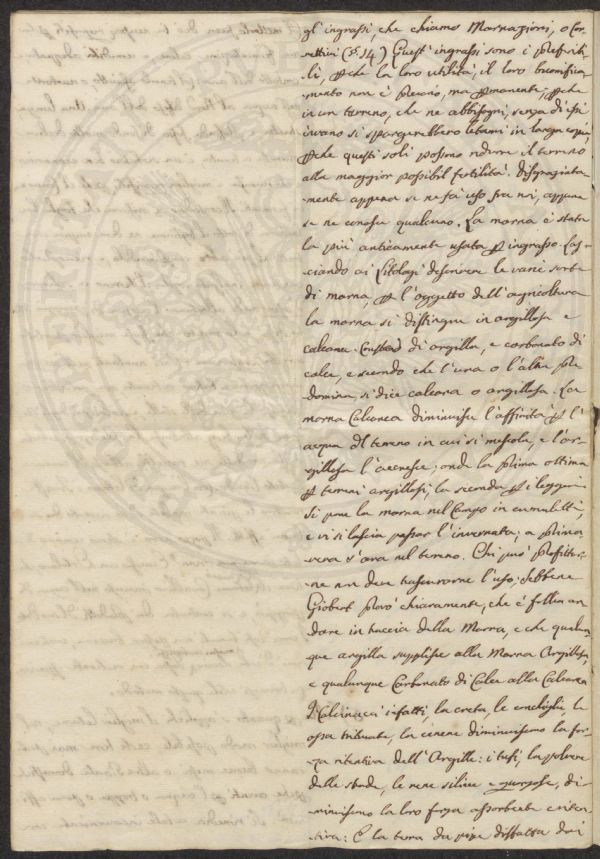 gl'ingrassi, che chiamo Marnazioni, o Cor-
rettivi (§ 14) Questi ingrassi sono i preferibi-
li, pche la loro utilità, il loro bonifica-
mento non è precario, ma pmanente; pche
in un terreno, che ne abbisogni, senza di essi
invano si spargerebbero letami in larga copia,
pche questi soli possono ridurre il terreno
alla maggior possibil fertilità. Disgraziata-
mente appena se ne fà uso fra noi, appena
se ne conosce qualcuno. La marna è stata
la più anticamente usata p ingrasso. Las-
ciando ai Litologi descrivere le varie sorte
di marna, p l'oggetto dell'agricoltura
la marna si distingue in argillosa e
calcarea. Consta di argilla, e carbonato di
calce, e secondo che l'una o l'altra pre
domina, si dice calcarea o argillosa. La
marna Calcarea diminuisce l'affinità p l'
acqua del terreno in cui si mescola, e l'ar-
gillosa l'accresce; onde la prima ottima
p terreni argillosi, la seconda p i leggeri
Si pone la marna nel Campo in cumuletti,
e vi si lascia passar l'invernata; a prima
vera s'ara nel terreno. Chi può profittar-
ne non deve trascurarne l'uso, sebbene
Giobert provò chiaramente, che è follia an
dare in traccia della Marna, e che qualun-
que argilla supplisce alla Marna Argillosa,
e qualunque Carbonato di Calce alla Calcarea
I Calcinacci infatti, la creta, le conchiglie le
ossa triturate, la cenere diminuiscono la for-
za ritentiva dell'Argille: i tufi, la polvere
delle strade, le rene silicee e, di-
minuiscono la loro forza assorbente e riten-
tiva: E la terra da pipe disfatta dai